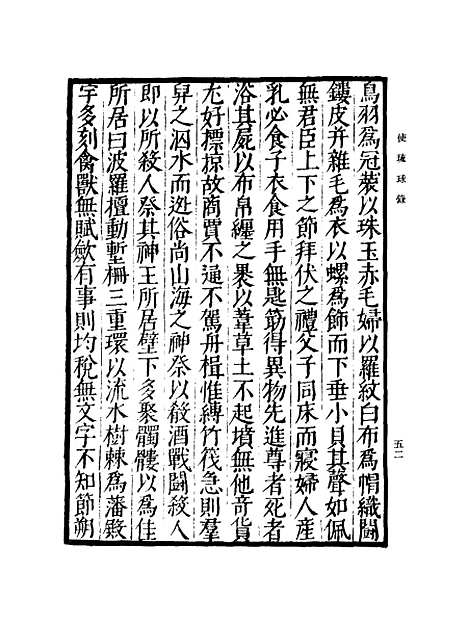 使琉球錄
五二
鳥羽爲冠裝以珠玉赤毛婦以羅紋白布爲帽織鬪
鏤皮幷雜毛爲衣以螺爲飾而下垂小貝其聲如佩
無君臣上下之節拜伏之禮父子同床而寢婦人産
乳必食子衣食用手無匙筯得異物先進尊者死者
浴其屍以布帛纏之裹以葦草土不起墳無他奇貨
尤好標掠故商賈不通不駕舟楫惟縛竹筏急則羣
舁之泅水而逃俗尚山海之神祭以殽酒戰鬪殺人
即以所殺人祭其神王所居壁下多聚髑髏以爲佳
所居曰波羅檀動塹柵三重環以流水樹棘爲藩殿
宇多刻禽獸無賦斂有事則均稅無文字不知節朔